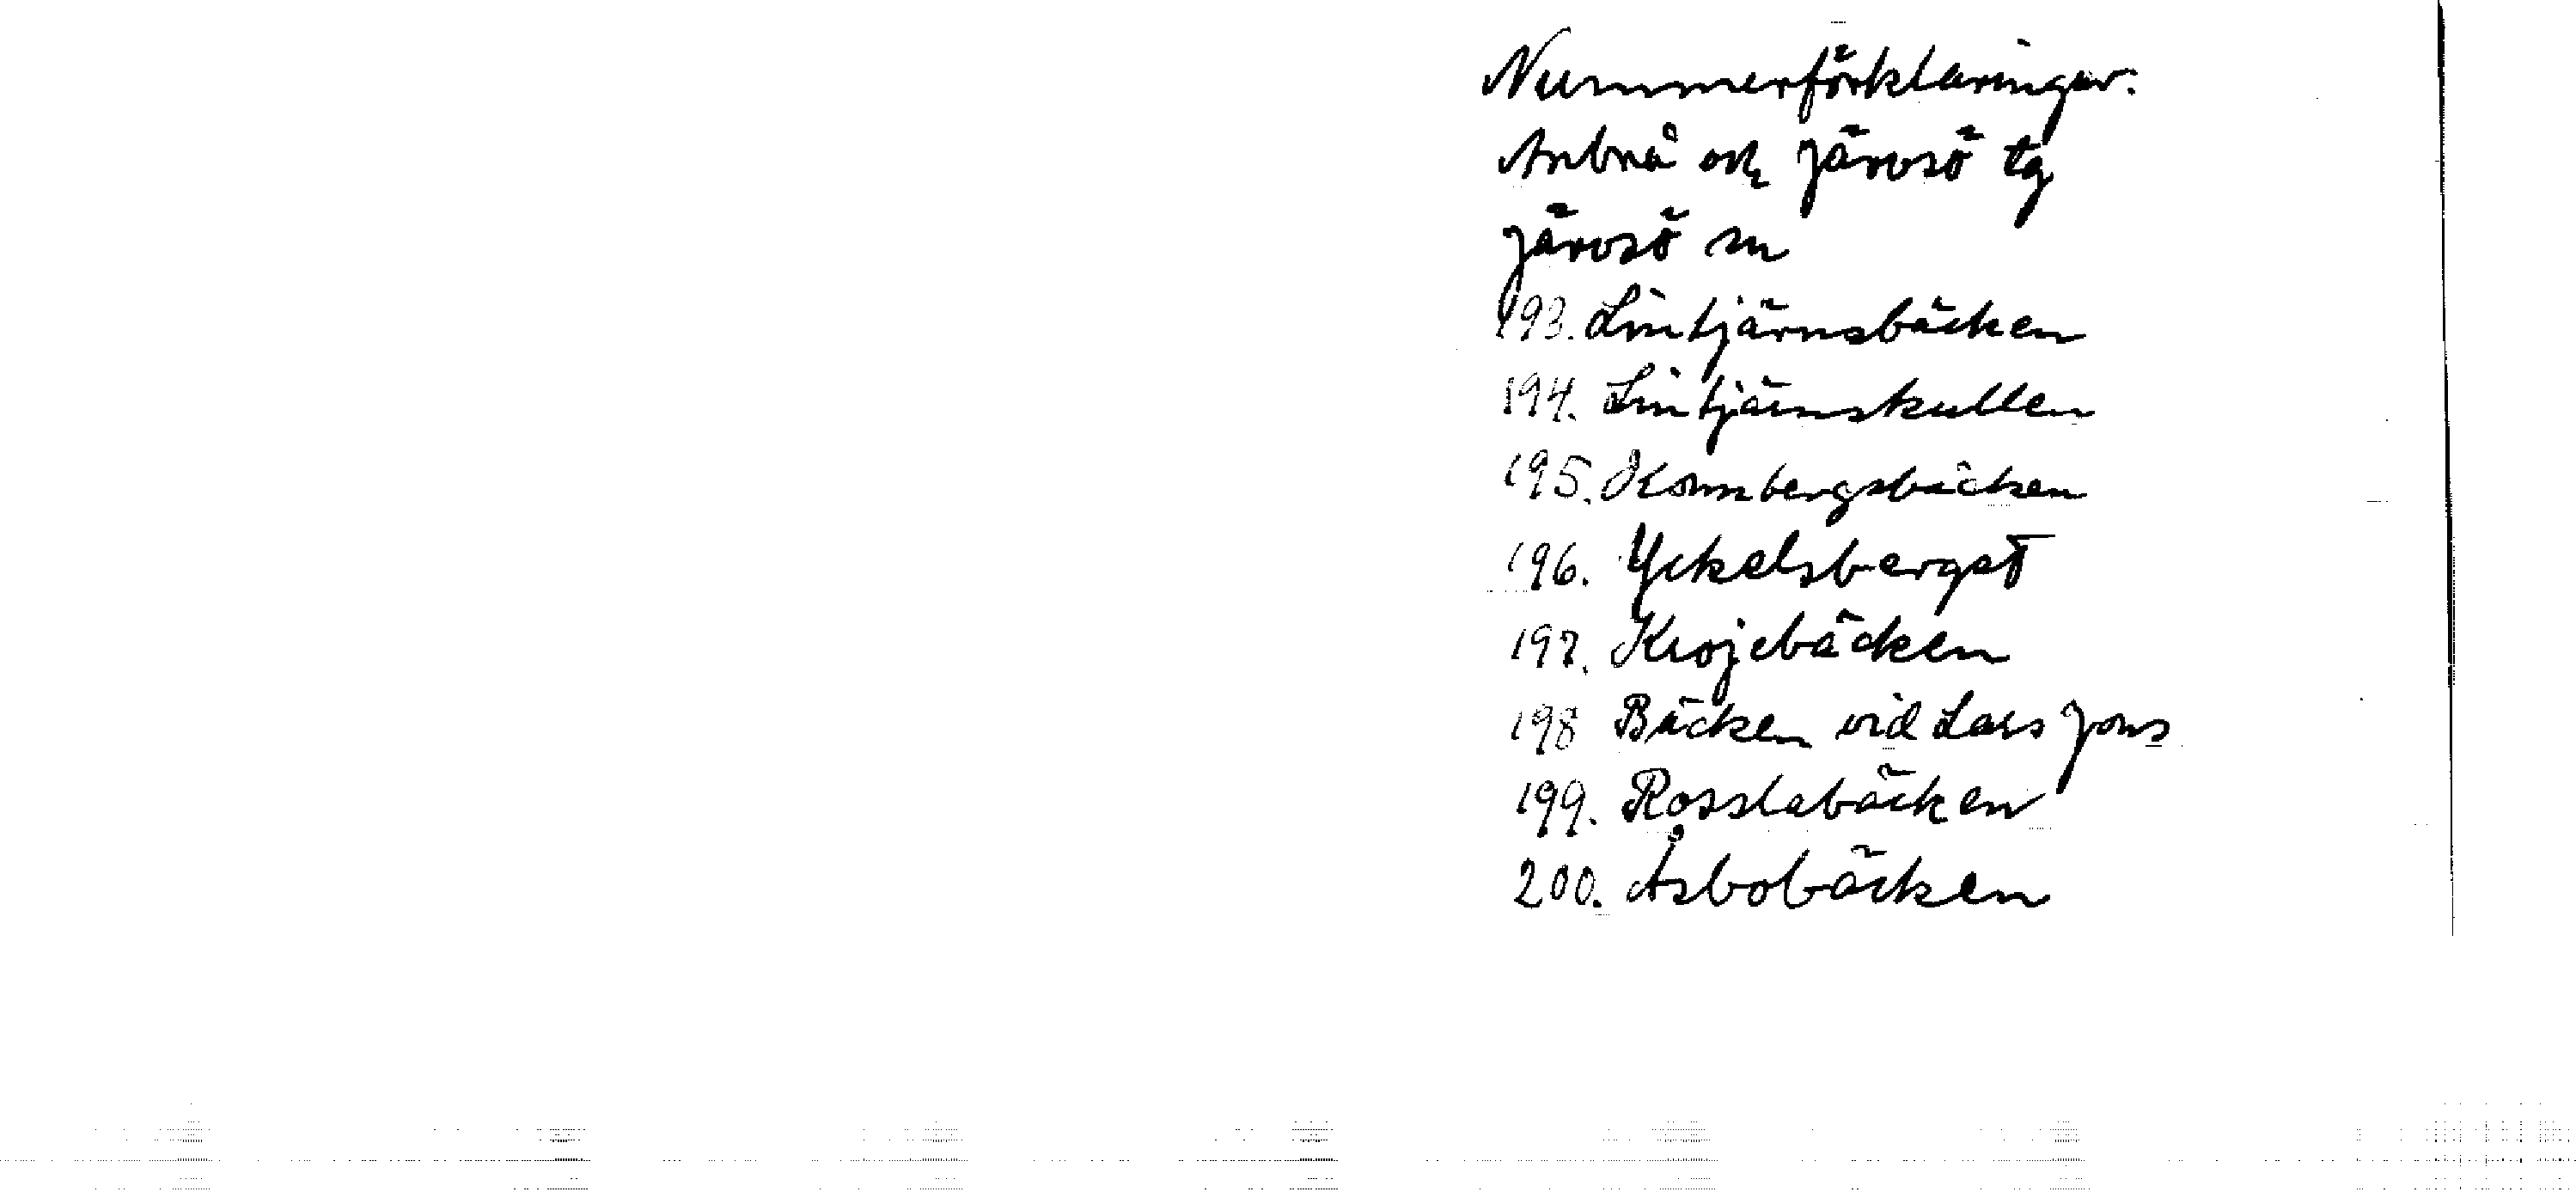 Nummerförklaringar.
Arbrå och Järvsö tg
Järvsö sn
193. Lintjärnsbäcken
194. Lintjärnskullen
195. Kornbergsbäcken
196. Yckelsberget
197. Krojebäcken
198 Bäcken vid Lars Jons
199. Rosslabäcken
200. Åsbobäcken